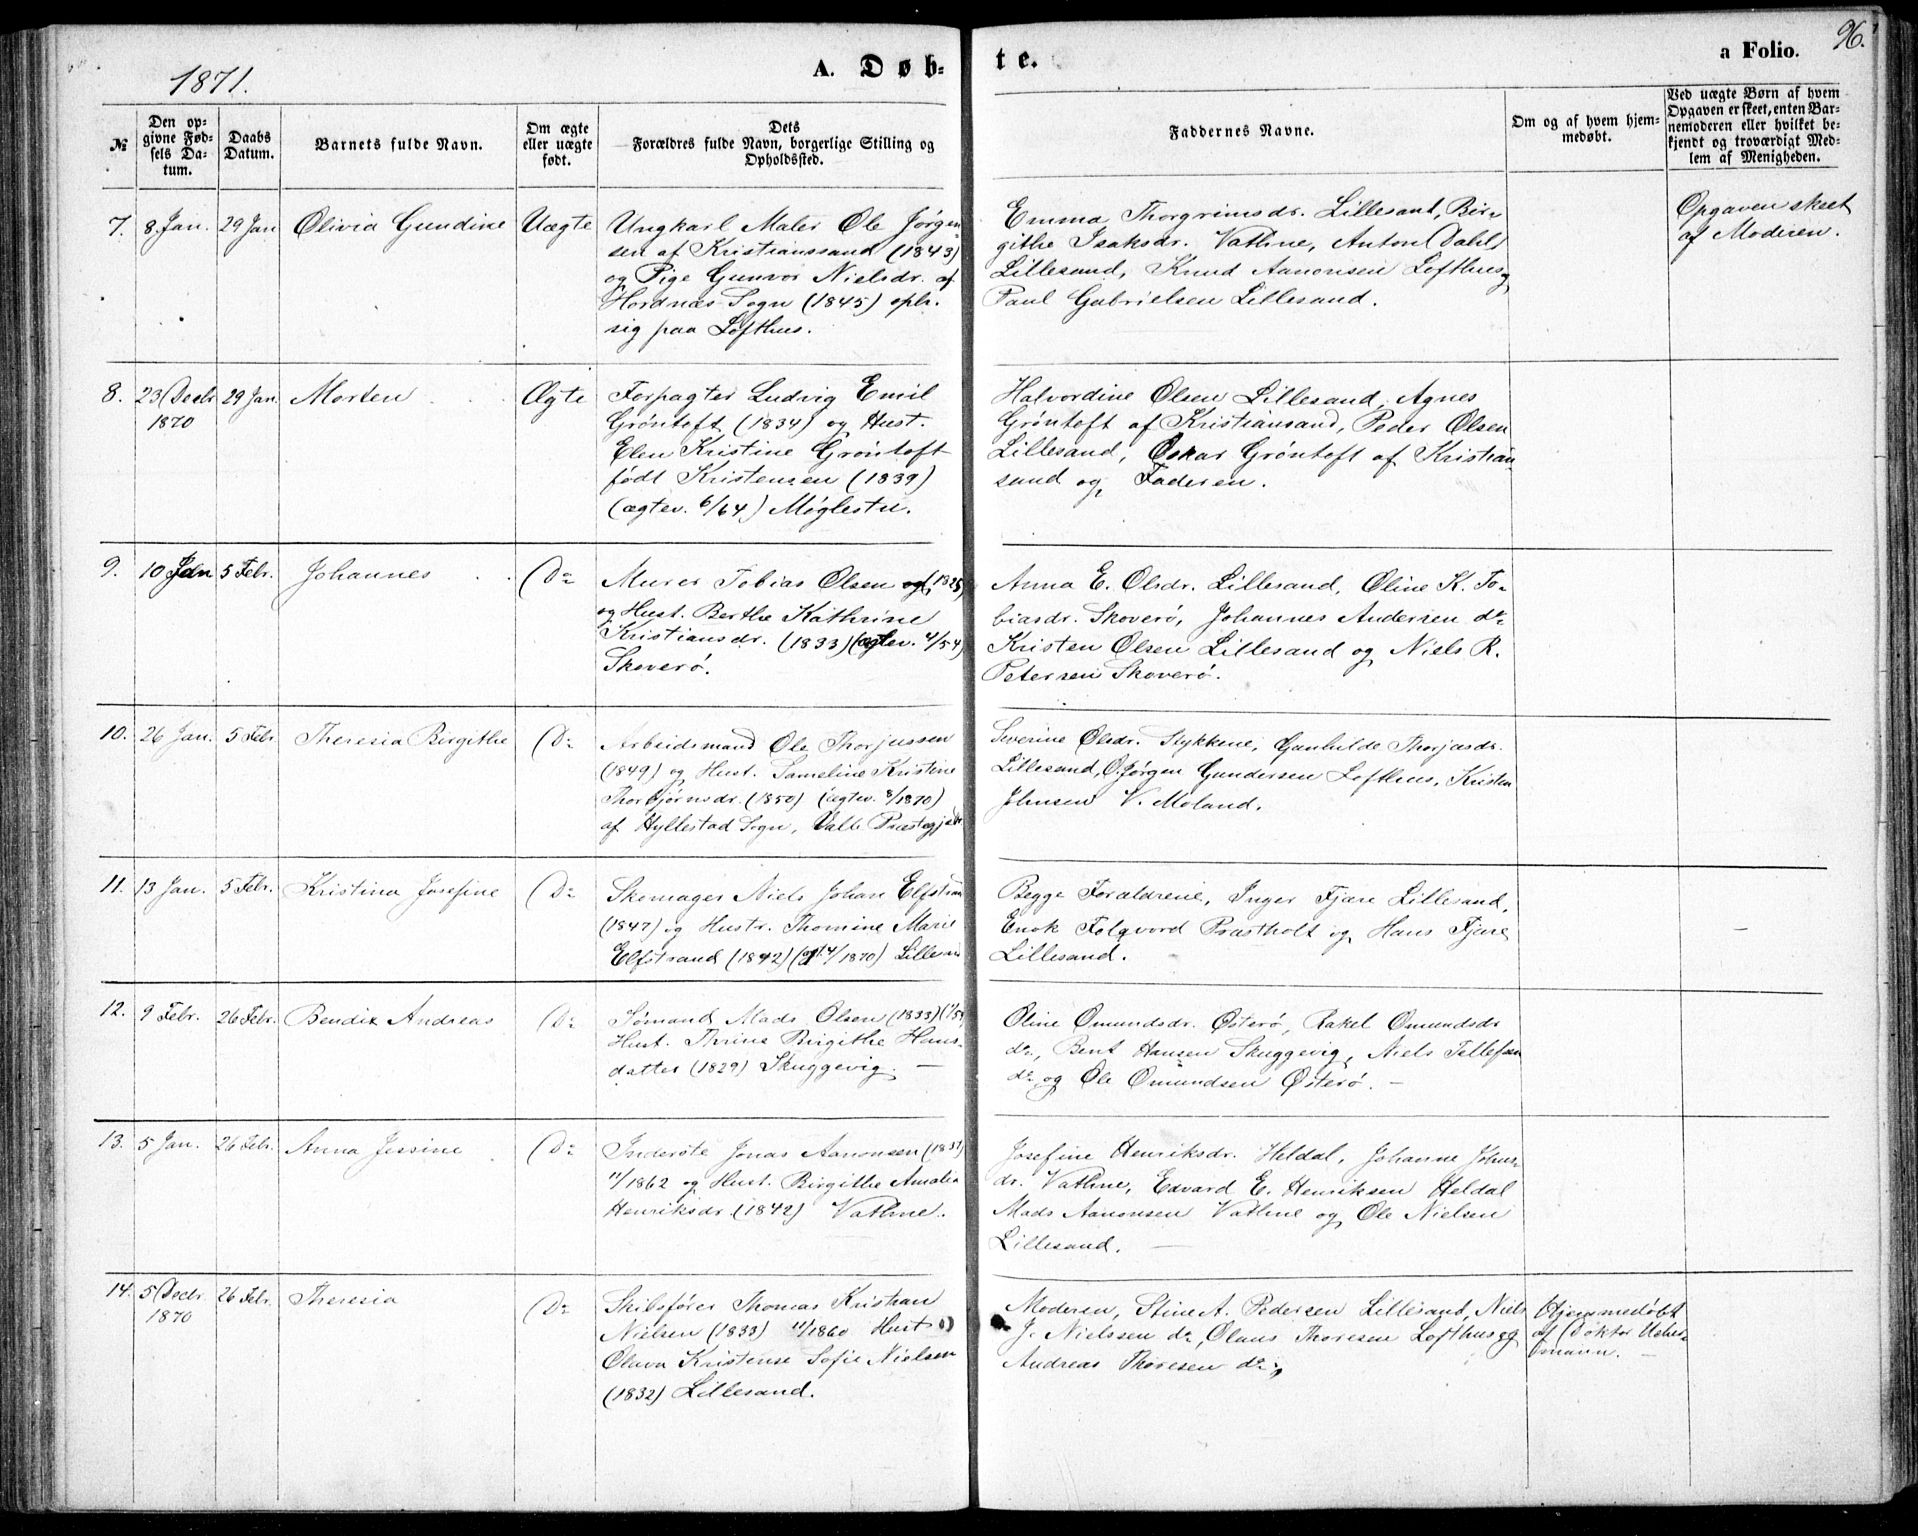 1871.
A. Døb-
te.
a Folio.
96.
№
Den op-
givne Fød-
sels Da-
tum.
Daabs
Datum.
Barnets fulde Navn.
Om ægte
eller uægte
født.
Dets
Forældres fulde Navn, borgerlige Stilling og
Opholdssted.
Faddernes Navne.
Om og af hvem hjem-
medøbt.
Ved uægte Børn af hvem
Opgaven er skeet, enten Bar-
nemoderen eller hvilket be-
kjendt og troværdigt Med-
lem af Menigheden.
7. 8 Jan. 29 Jan Olivia Gundine Uægte
Ungkarl Maler Ole Jørgen-
sen af Kristianssand (1843)
og Pige Gunvor Nielsdr. af
Hordnæs Sogn (1845) oph.
sig paa Lofthus.
Emma Thorgrimsdr. Lillesand, Bir-
githe Isaksdr. Vathne, Anton Dahl
Lillesand, Knud Aanonsen Lofthus og
Paul Gabrielsen Lillesand.
Opgaven skeet
af Moderen.
8. 23 Decbr 29 Jan. Morten Ægte
1870
Forpagter Ludvig Emil
Grøntoft (1834) og Hust.
Elen Kristine Grøntoft
født Kristensen (1839)
(ægtev. 6/64) Møglestu.
Halvordine Olsen Lillesand, Agnes
Grøntoft af Kristiansand, Peder Olsen
Lillesand, Oskar Grøntoft af Kristian-
sand og Faderen.
9. 10 Jan 5 Febr. Johannes Do
Murer Tobias Olsen
og Hust. Berthe Kathrine
Kristiansdr. (1833) (ægtev. 4/54)
Skoverø.
Anna E. Olsdr. Lillesand, Oline K. To-
biasdr. Skoverø, Johannes Andersen do
Kristen Olsen Lillesand og Niels R.
Petersen Skoverø.
10. 26 Jan. 5 Febr Theresia Birgithe Do
Arbeidsmand Ole Thorjussen
(1849) og Hust. Sameline Kristine
Thorbjørnsdr. (1850) (ægtev. 8/1870)
af Hyllestad Sogn, Valle Præstegj
Severine Olsdr. Stykkene, Gunhilde Thorjusdr.
Lillesand, O. Jørgen Gundersen Lofthus, Kristen
Johnsen V. Moland.
11. 13 Jan. 5 Febr. Kristina Josefine Do
Skomager Niels Johan Elfstrand
(1847) og Hustr. Thomine Marie
Elfstrand (1842) 4/1870) Lillesand
Begge Forældrene, Inger Fjære Lillesand,
Enok Folqvord Præstholt og Hans Fjære
Lillesand.
—
12. 9 Febr. 26 Febr. Bendix Andreas Do
Sømand Mads Olsen (1833)
Hust. Thrine Birgithe Hans-
datter (1829) Skuggevig. —
Oline Omundsdr. Østerø, Rakel Omundsdr
do, Bent Hansen Skuggevig, Niels Tellefsen
do og Ole Omundsen Østerø. —
13. 5 Jan. 26 Febr. Anna Jessine Do
Inderste Jonas Aanonsen
11/1862 og Hust. Birgithe Amalia
Henriksdr. (1842) Vathne.
Josefine Henriksdr. Heldal, Johanne Johns-
dr. Vathne, Edvard E. Henriksen Heldal
Mads Aanonsen Vathne og Ole Nielsen
Lillesand. —
14. 5 Decbr 26 Febr. Theresia Do
1870
Skibsfører Thomas Kristian
Nielsen (1833) 11/1860 Hust
Olava Kristense Sofie Nielsen
(1832) Lillesand.
Moderen, Stine A. Pedersen Lillesand, Niels
J. Nielssen do, Olaus Thoresen Lofthus og
Andreas Thoresen do
Hjemmedøbt
af Doktor